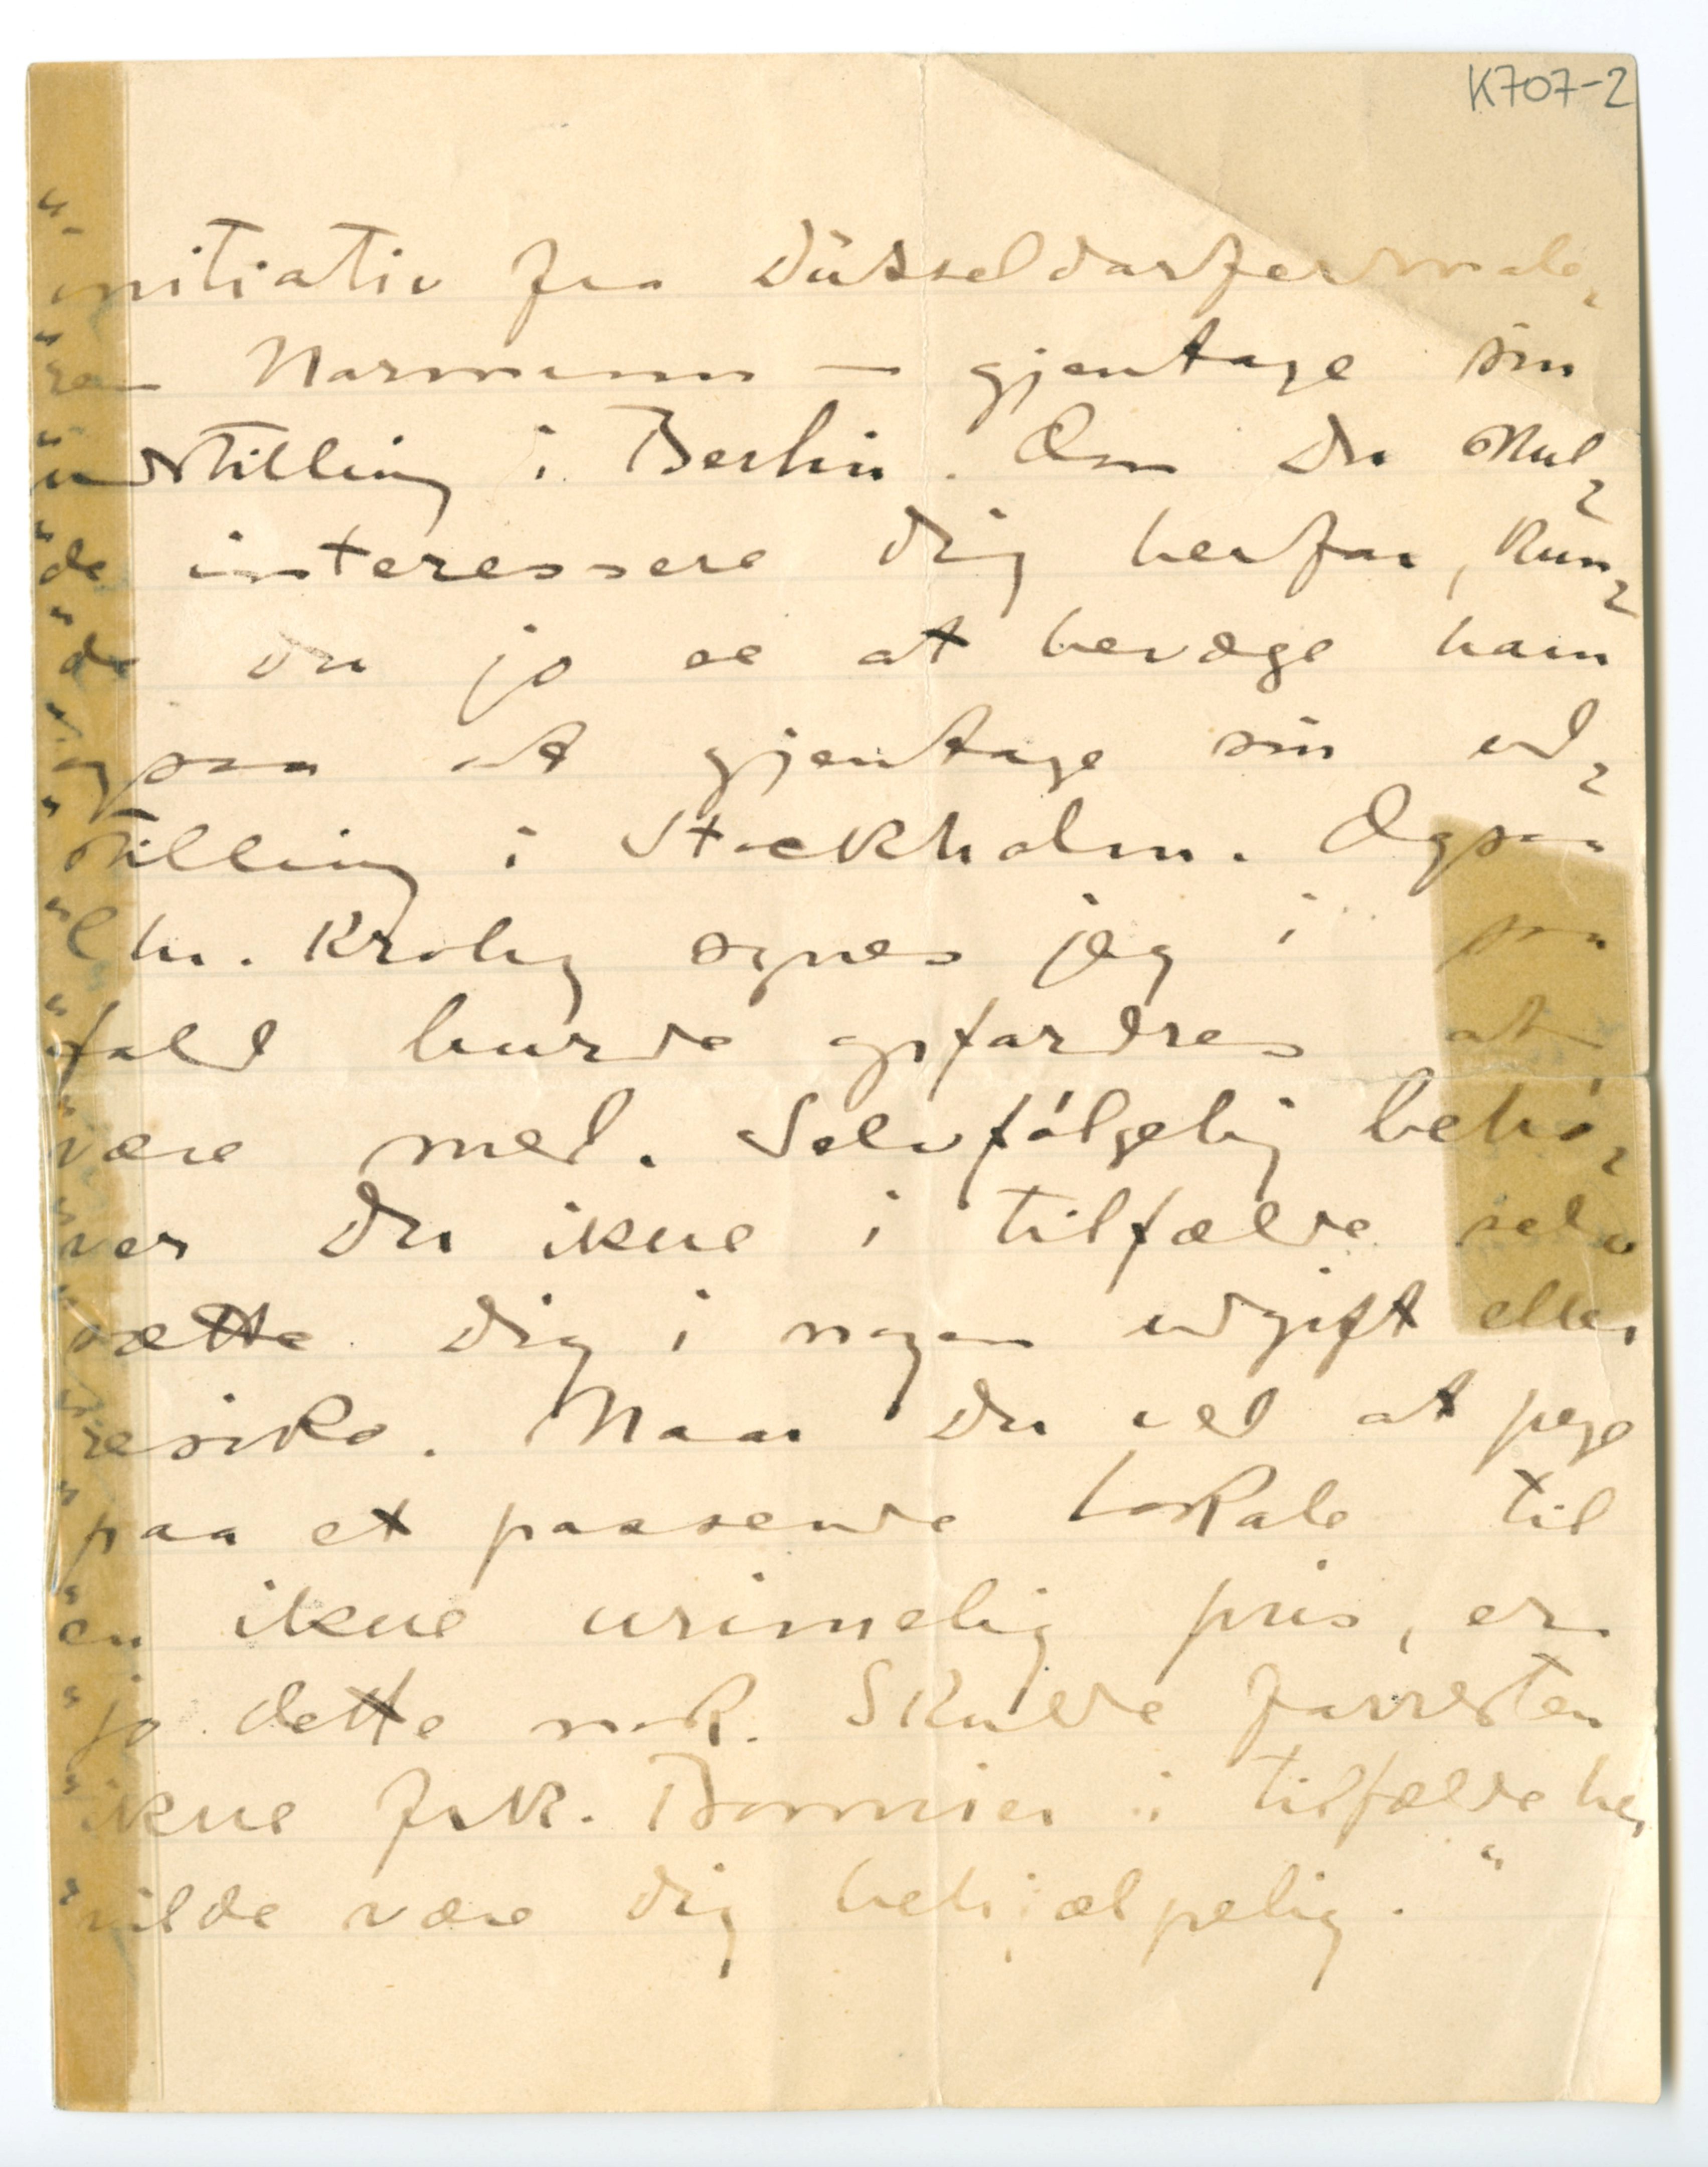 K707-2
"initiativ fra Düsseldorfermale-
"ren Normann — gjentage sin
"udstilling i Berlin. Om Du skul-
"de interessere Dig herfor, kun-
"de Du jo se at bevæge ham
"ogsaa at gjentage sin ud-
"stilling i Stockholm. Ogsaa
"Chr. Krohg synes jeg i saa
"fald burde opfordres at
"være med. Selvfölgelig behö-
"ver Du ikke i tilfælde selv
"sætte Dig i nogen udgift eller
"resiko. Naar Du ved at pege
"paa et passende lokale til
"en ikke urimelig pris, er
"jo dette nok. Skulde forresten
"ikke frk. Bonnier i tilfælde her
"vilde være Dig behjælpelig."